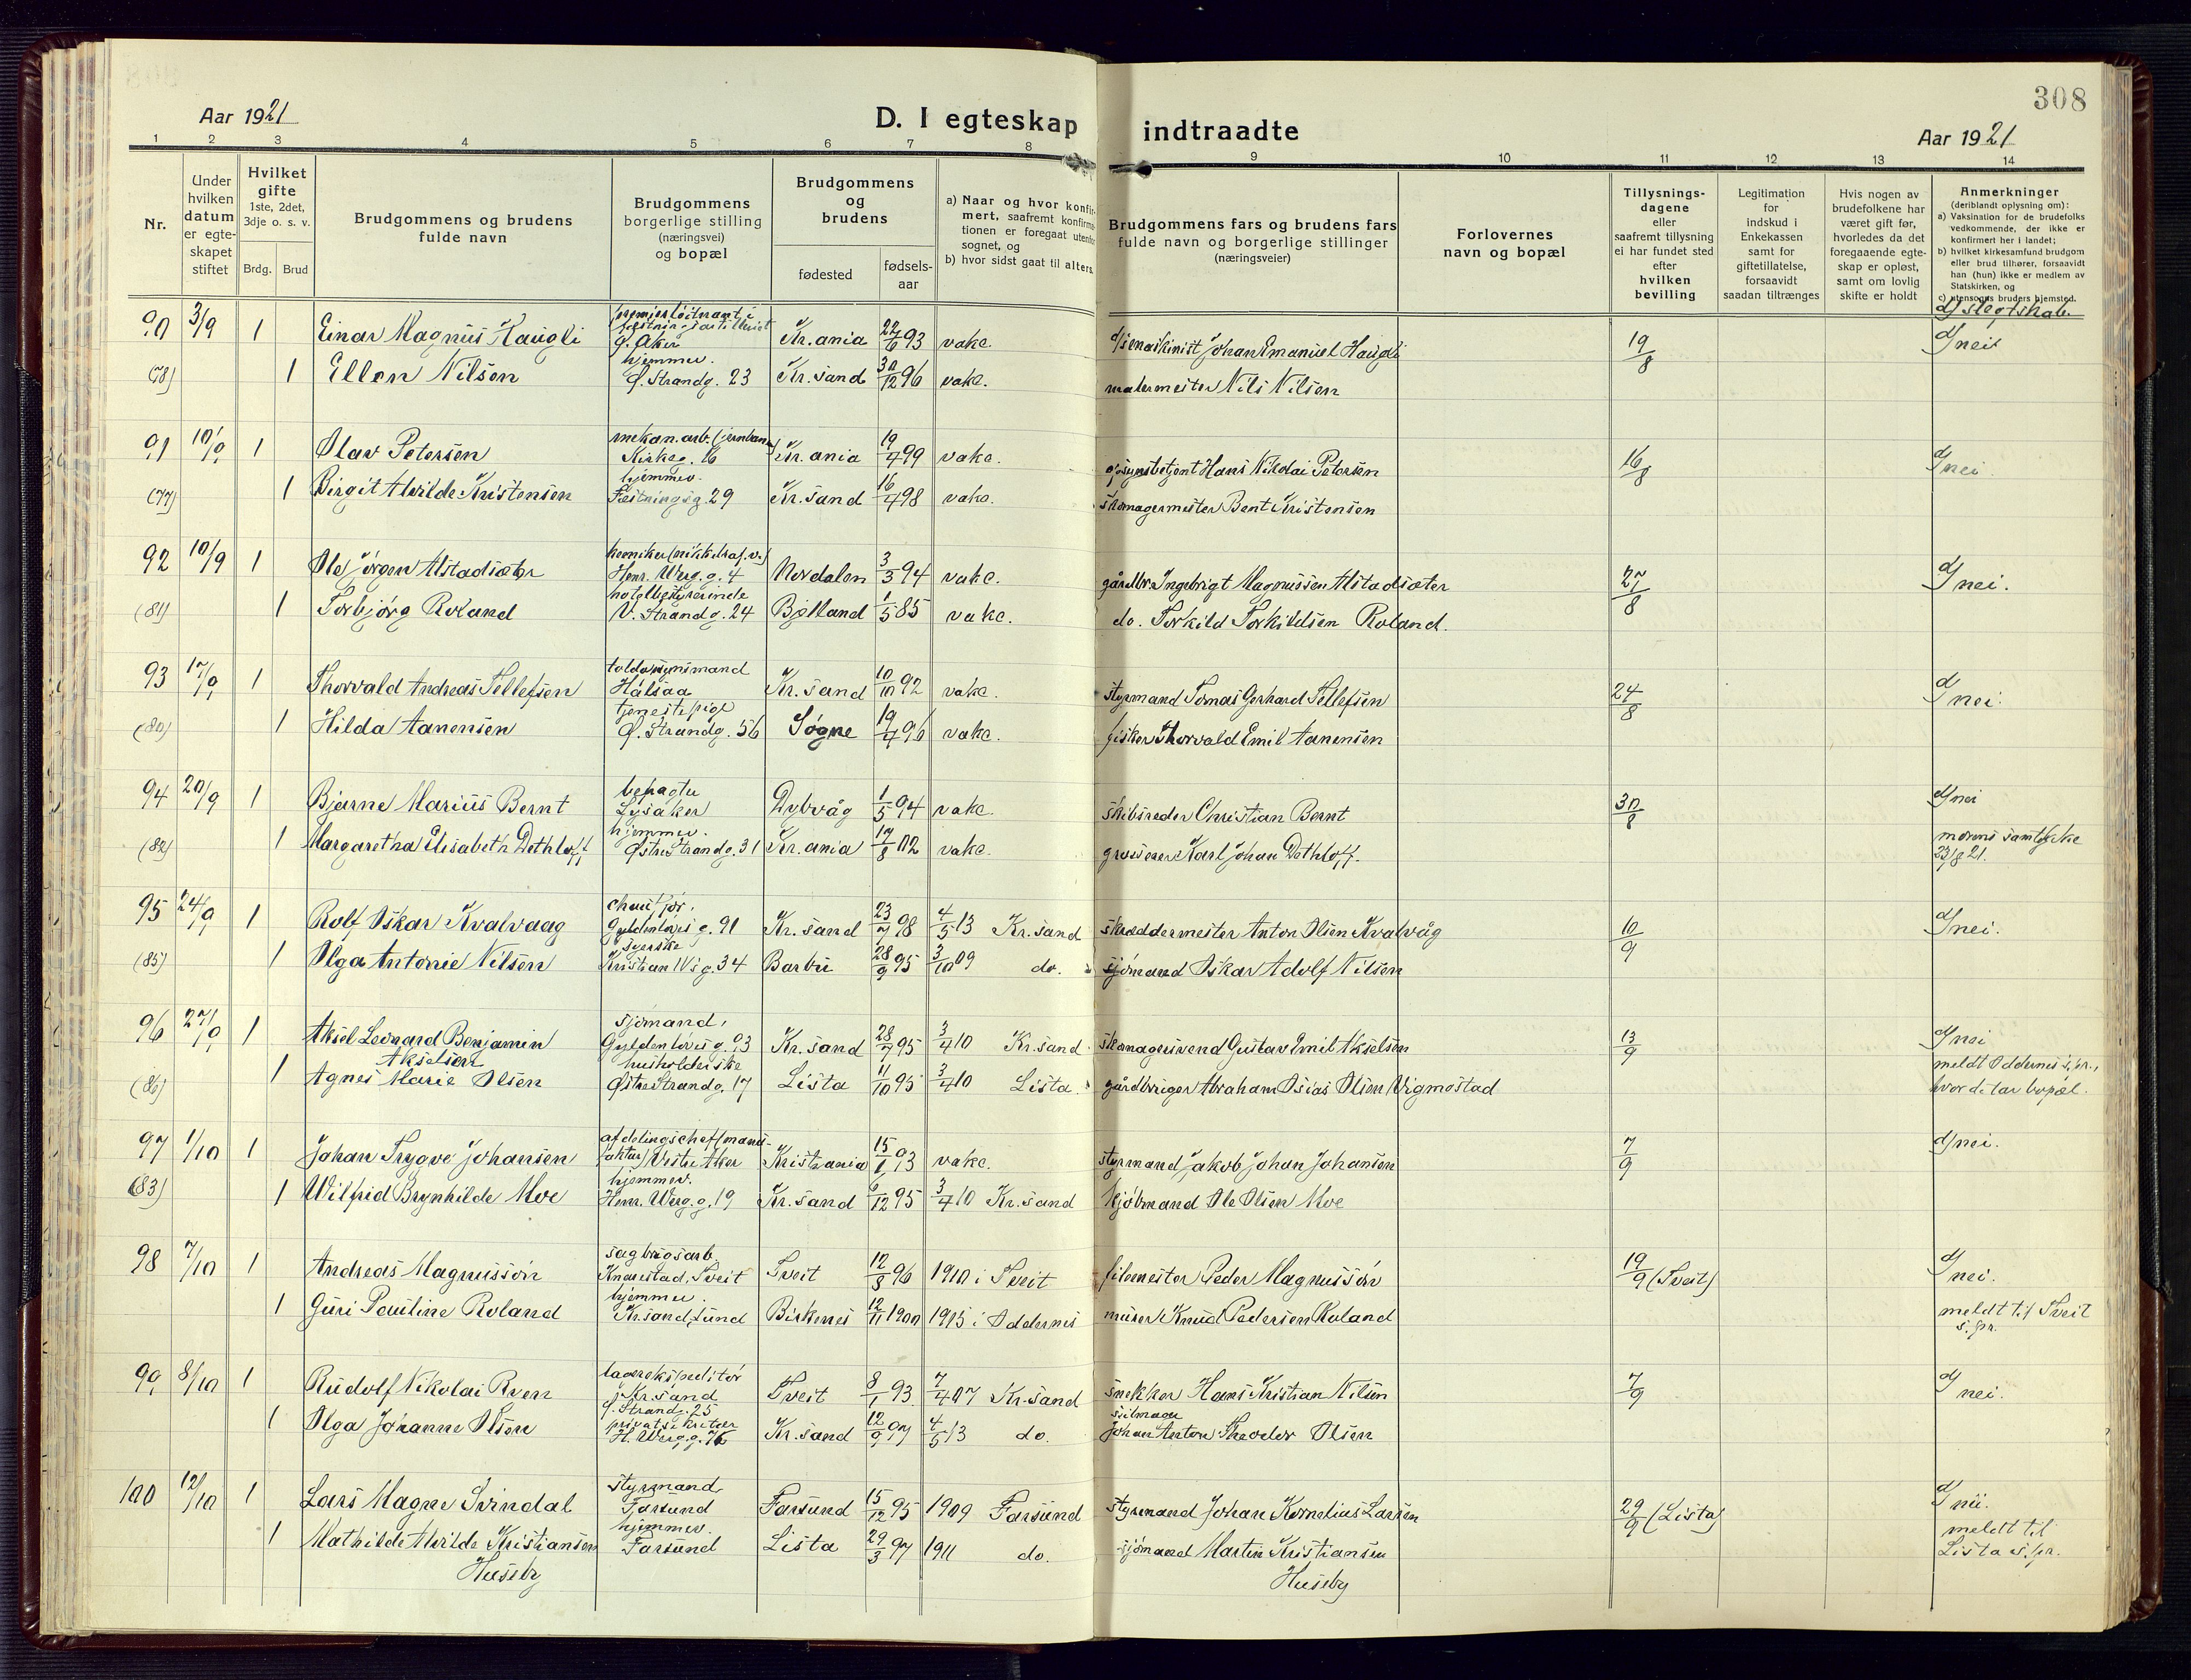 308
Aar 1921
D. I egteskap indtraadte
Aar 1921
1 2 3 4 5 6 7 8 9 10 11 12 13 14
Nr.
Under hvilken datum er egte-skapet stiftet
Hvilket gifte
1ste, 2det, 3dje o. s. v.
Brdg. Brud
Brudgommens og brudens fulde navn
Brudgommens borgerlige stilling (næringsvei) og bopæl
Brudgommens og brudens
fødested
fødsels-aar
a) Naar og hvor konfir-mert, saafremt konfirma-tionen er foregaat utenfor sognet, og
b) hvor sidst gaat til alters.
Brudgommens fars og brudens fars fulde navn og borgerlige stillinger (næringsveier)
Forlovernes navn og bopæl
Tillysnings-dagene eller saafremt tillysning ei har fundet sted efter hvilken bevilling
Legitimation for indskud i Enkekassen samt for giftetillatelse, forsaavidt saadan tiltrænges
Hvis nogen av brudefolkene har været gift før, hvorledes da det foregaaende egte-skap er opløst, samt om lovlig skifte er holdt
Anmerkninger
(deriblandt oplysning om):
a) Vaksination for de brudefolks vedkommende, der ikke er konfirmert her i landet;
b) hvilket kirkesamfund brudgom eller brud tilhører, forsaavidt han (hun) ikke er medlem av Statskirken, og
c) utensogns bruders hjemsted.
d) slegtskab.
90 3/9 1 Einar Magnus Haugli premierløitnant i Ø. Aker Kr.ania 22/6 93 vake. Johan Emanuel Haugli 19/8 d) nei
(78) 1 Ellen Nilsen hjemmev. Ø. Strandg. 23 Kr.sand 30/12 96 vake. malermester Nils Nilsen
91 10/9 1 Olav Petersen mekan. arb. (jernbane) Kirkeg. 16 Kr.ania 19/4 99 vake. Hans Nikolai Petersen 16/8 d) nei
(77) 1 Birgit Alvilde Kristensen hjemmev. Festningsg. 29 Kr.sand 16/4 98 vake. skomagermester Bent Kristensen
92 10/9 1 Ole Jørgen Alstadsæter Henr. Werg. g. 4 Nordalen 3/3 94 vake. gårdbr. Ingebrigt Magnussen Alstadsæter 27/8 d) nei.
(81) 1 Torbjørg Roland hotelbestyrerinde V. Strandg. 24 Bjelland 1/5 85 vake. do. Torkild Torkildsen Roland.
93 17/9 1 Thorvald Andreas Tellefsen Hålsaa Kr.sand 10/10 92 vake. styrmand Tomas Gerhard Tellefsen 24/8 d) nei.
(80) 1 Hilda Aanensen tjenestepige Ø. Strandg. 56 Søgne 19/4 96 vake. fisker Thorvald Emil Aanensen
94 20/9 1 Bjarne Marius Bernt Lysaker Dybvåg 1/5 94 vake. skibsreder Christian Bernt 30/8 d) nei
(82) 1 Margaretha Elisabeth Dethloff hjemmev. Østre Strandg. 31 Kr.ania 17/8 02 vake. grosserer Karl Johan Dethloff. morens samtykke 23/8 21.
95 24/9 1 Rolf Oskar Kvalvaag chaufør, Gyldenløvs g. 91 Kr.sand 23/7 98 4/5 13 Kr.sand skræddermester Anton Olsen Kvalvåg 10/9 d) nei.
(85) 1 Olga Antonie Nilsen syerske Kristian IVs g. 34 Barbu 28/9 95 3/10 09 do. sjømand Oskar Adolf Nilsen
96 27/9 1 Aksel Leonard Benjamin Akselsen sjømand, Gyldenløvs g. 93 Kr.sand 28/7 95 3/4 10 Kr.sand skomagersvend Gustav Emil Akselsen 13/9 d) nei
(86) 1 Agnes Marie Olsen husholderske Østre Strandg. 17 Lista 11/10 95 3/4 10 Lista gårdbruger Abraham Osias Olsen Vigmostad meldt Oddernes s.pr., hvor de tar bopæl.
97 1/10 1 Johan Trygve Johansen afdelingschef (manufaktur) Vestre Aker Kristiania 15/1 93 vake. styrmand Jakob Johan Johansen 7/9 d) nei.
(83) 1 Wilfrid Brynhilde Moe hjemmev. Henr. Werg. g. 19 Kr.sand 9/12 95 3/4 10 Kr.sand kjøbmand Ole Olsen Moe
98 7/10 1 Andreas Magnussøn sagbrugsarb. Knarestad, Tveit Tveit 12/8 96 1910 i Tveit Peder Magnussøn 19/9 (Tveit) d) nei.
1 Guri Pauline Roland hjemmev. Kr.sand, Lund Birkenes 12/11 1900 1915 i Oddernes murer Knud Pedersen Roland meldt til Tveit s.pr.
99 8/10 1 Rudolf Nikolai Rven lagerekspeditør Kr.sand Ø. Strandg. 25 Tveit 8/1 93 7/4 07 Kr.sand snekker Hans Kristian Nilsen 7/9 d) nei.
1 Olga Johanne Olsen privatsekretær H. Werg. g. Kr.sand 12/9 97 4/5 13 do. seilmager Johan Anton Theodor Olsen
100 12/10 1 Lars Magne Svindal styrmand, Farsund Farsund 15/12 95 1909 Farsund styrmand Johan Kornelius Larsen 29/9 (Lista) d) nei.
1 Mathilde Alvilde Kristiansen Huseby hjemmev. Farsund Lista 29/3 97 1911 do. sjømand Martin Kristiansen Huseby meldt til Lista s.pr.